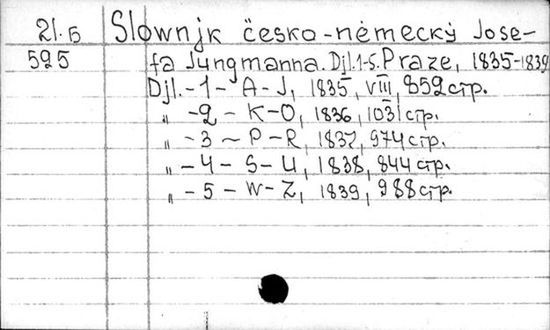 21.5 Slownjk česko-německý Jose-
595 fa Jungmanna. Djl.1-5. Praze, 1835-1839
Djl.-1-A-J, 1835, VIII, 852 стр.
„ -2-K-O, 1836, 1031 стр.
„ -3-P-R, 1837, 974 стр.
„ -4-S-U, 1838, 844 стр.
„ -5-W-Z, 1839, 988 стр.